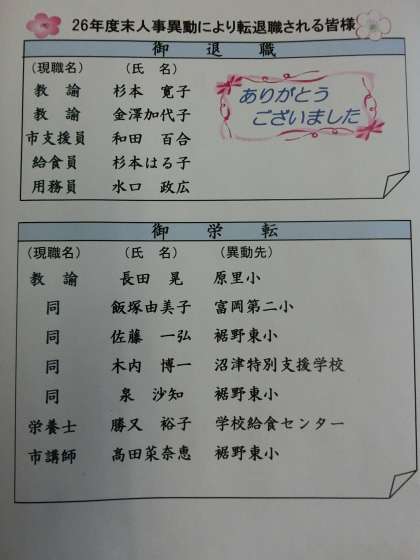 26年度末人事異動により転退職される皆様
御 退 職
(現職名) (氏 名)
教 諭 杉本 寛子
教 諭 金澤加代子
市支援員 和田 百合
給食員 杉本はる子
用務員 水口 政広
ありがとう
ございました
御 栄 転
(現職名) (氏 名) (異動先)
教 諭 長田 晃 原里小
同 飯塚由美子 富岡第二小
同 佐藤 一弘 裾野東小
同 木内 博一 沼津特別支援学校
同 泉 沙知 裾野東小
栄養士 勝又 裕子 学校給食センター
市講師 高田菜奈恵 裾野東小